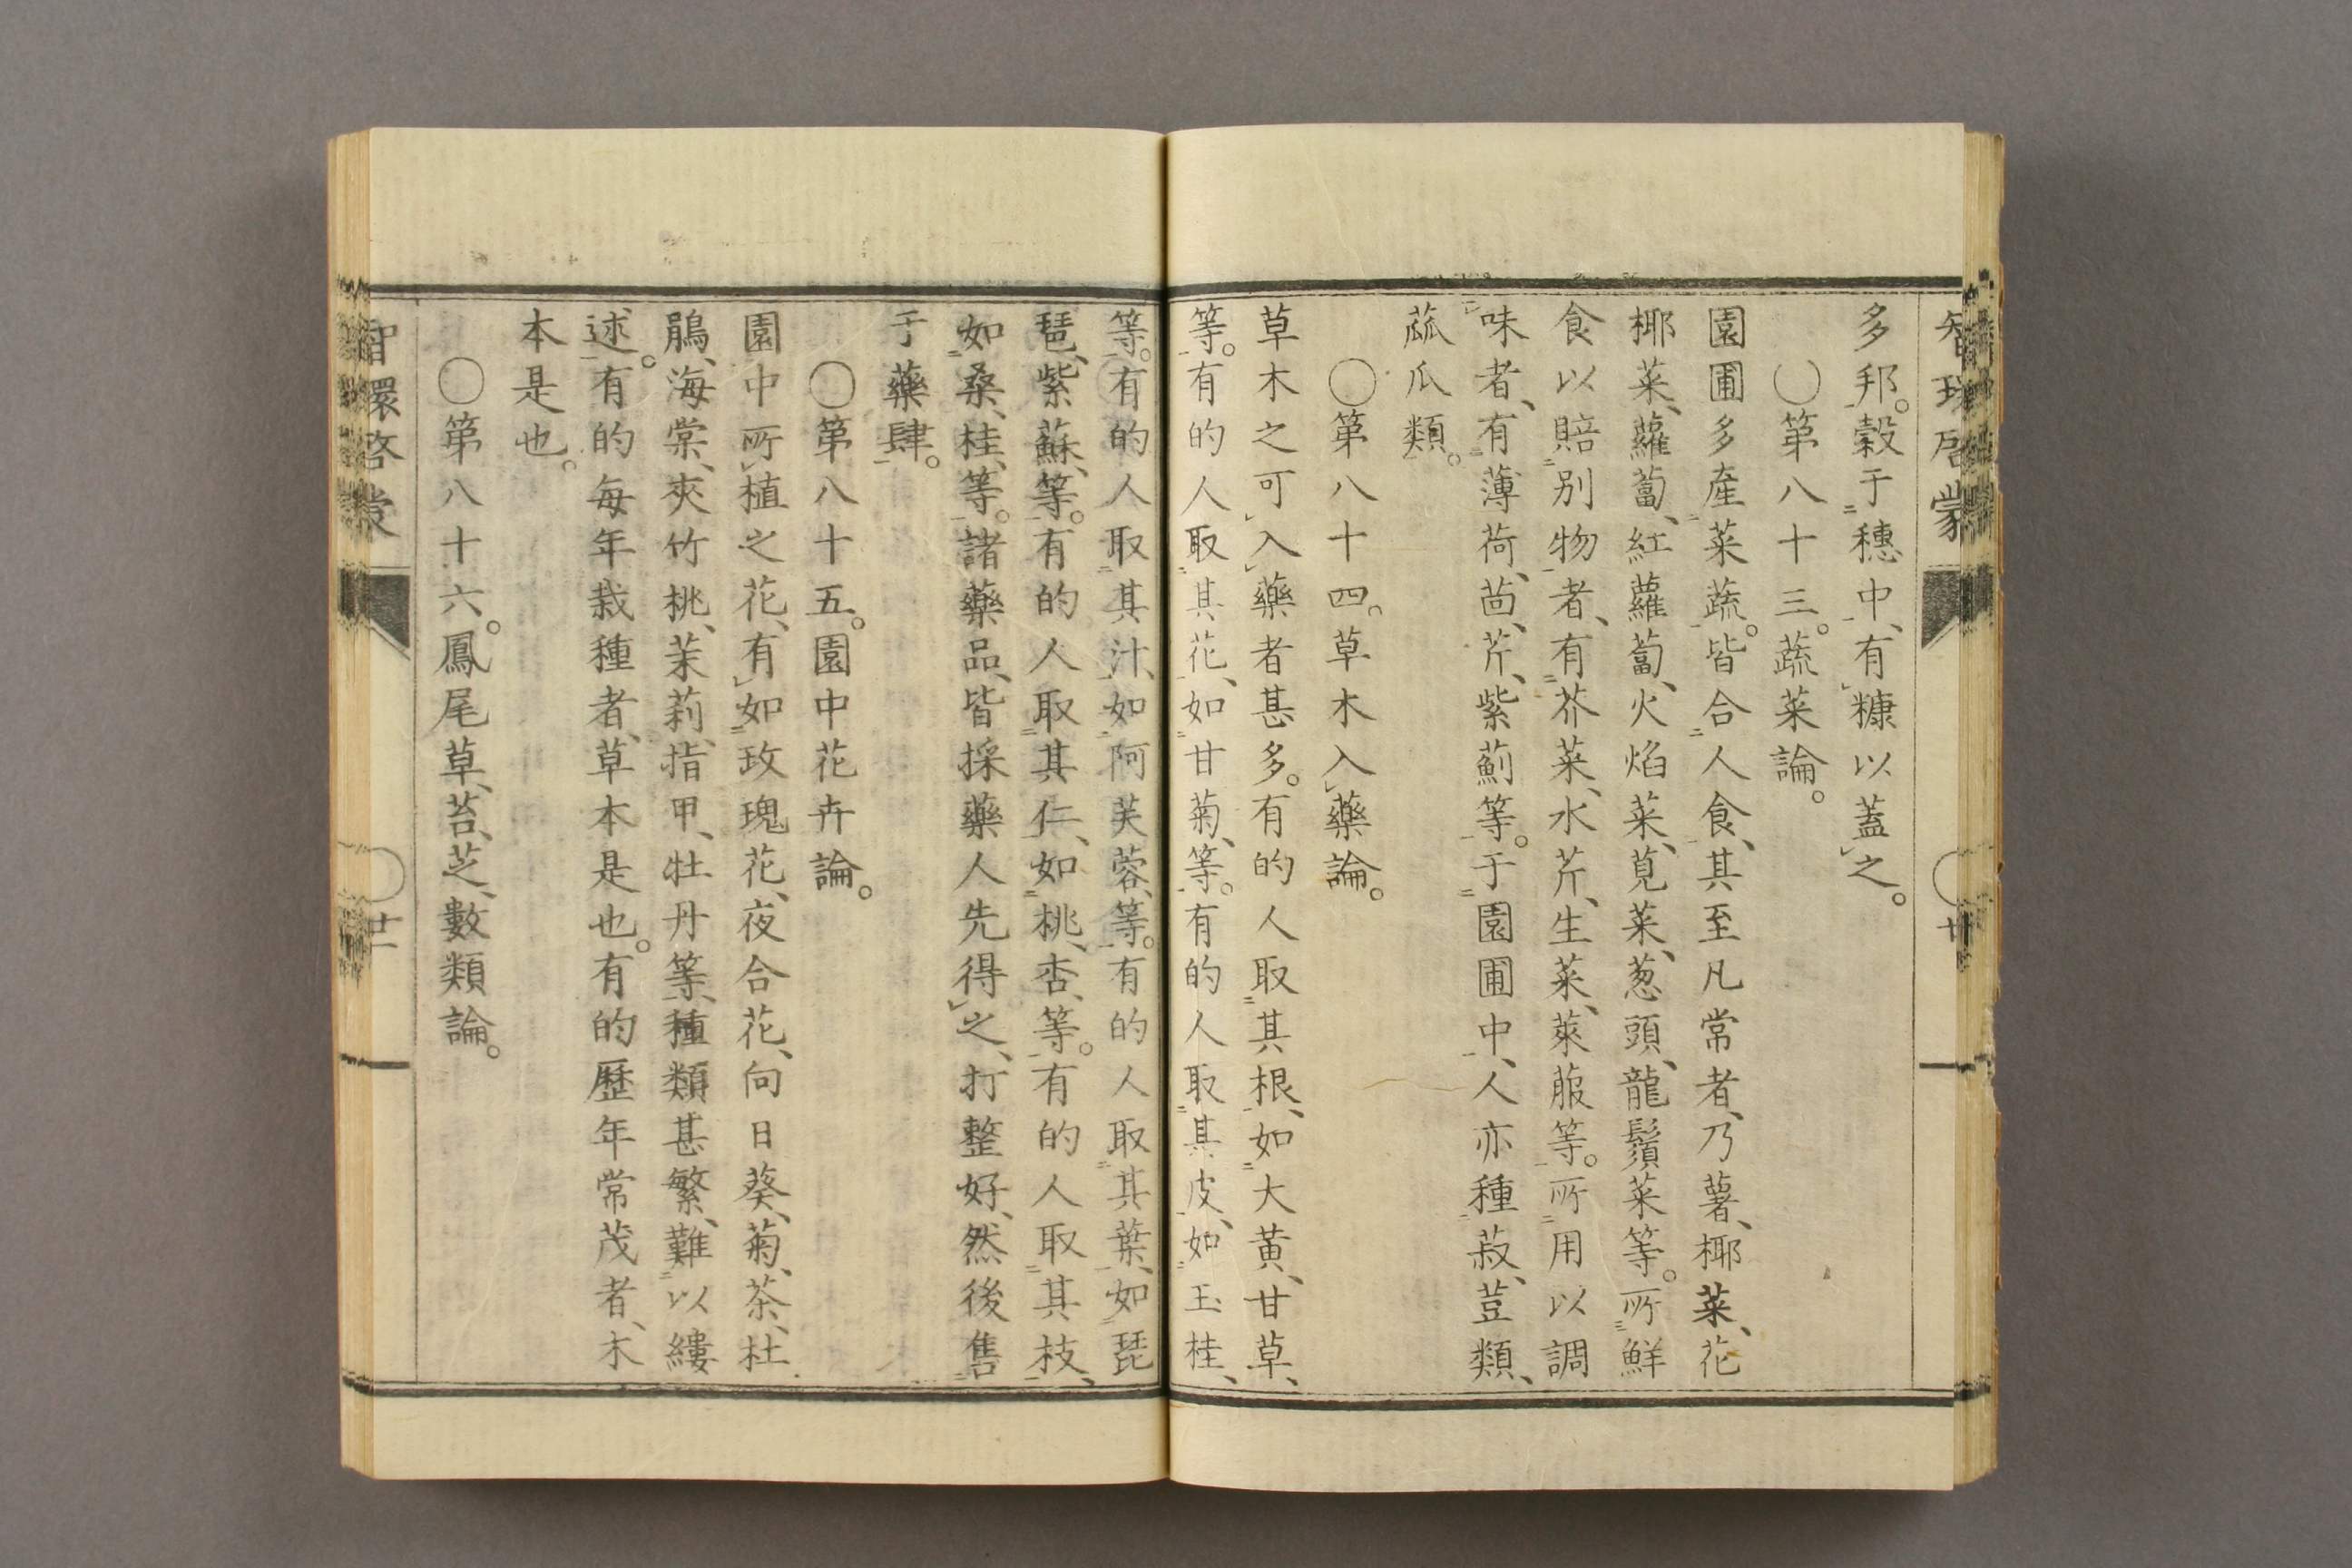 智環啓蒙 〇廿
多邦。穀于穗中、有糠以蓋之。
〇第八十三。蔬菜論。
園圃多產菜蔬。皆合人食、其至凡常者、乃薯、椰菜、花
椰菜、蘿蔔、紅蘿蔔、火焰菜、莧菜、葱頭、龍鬚菜等。所鮮
食以賠別物者、有芥菜、水芹、生菜、萊菔等。所用以調
味者、有薄荷、茴、芹、紫薊等。于園圃中、人亦種菽、荳類、
蓏瓜類。
〇第八十四。草木入藥論。
草木之可入藥者甚多。有的人取其根、如大黃、甘草、
等。有的人取其花、如甘菊、等。有的人取其皮、如玉桂、
等。有的人取其汁、如阿芙蓉、等。有的人取其葉、如琵
琶、紫蘇、等。有的人取其仁、如桃、杏、等。有的人取其枝、
如桑、桂、等。諸藥品、皆採藥人先得之、打整好、然後售
于藥肆。
〇第八十五。園中花卉論。
園中所植之花、有如玫瑰花、夜合花、向日葵、菊、茶、杜
鵑、海棠、夾竹桃、茉莉、指甲、牡丹等、種類甚繁、難以縷
述。有的每年栽種者、草本是也。有的歷年常茂者、木
本是也。
〇第八十六。鳳尾草、苔、芝、數類論。
智環啓蒙 〇廿一